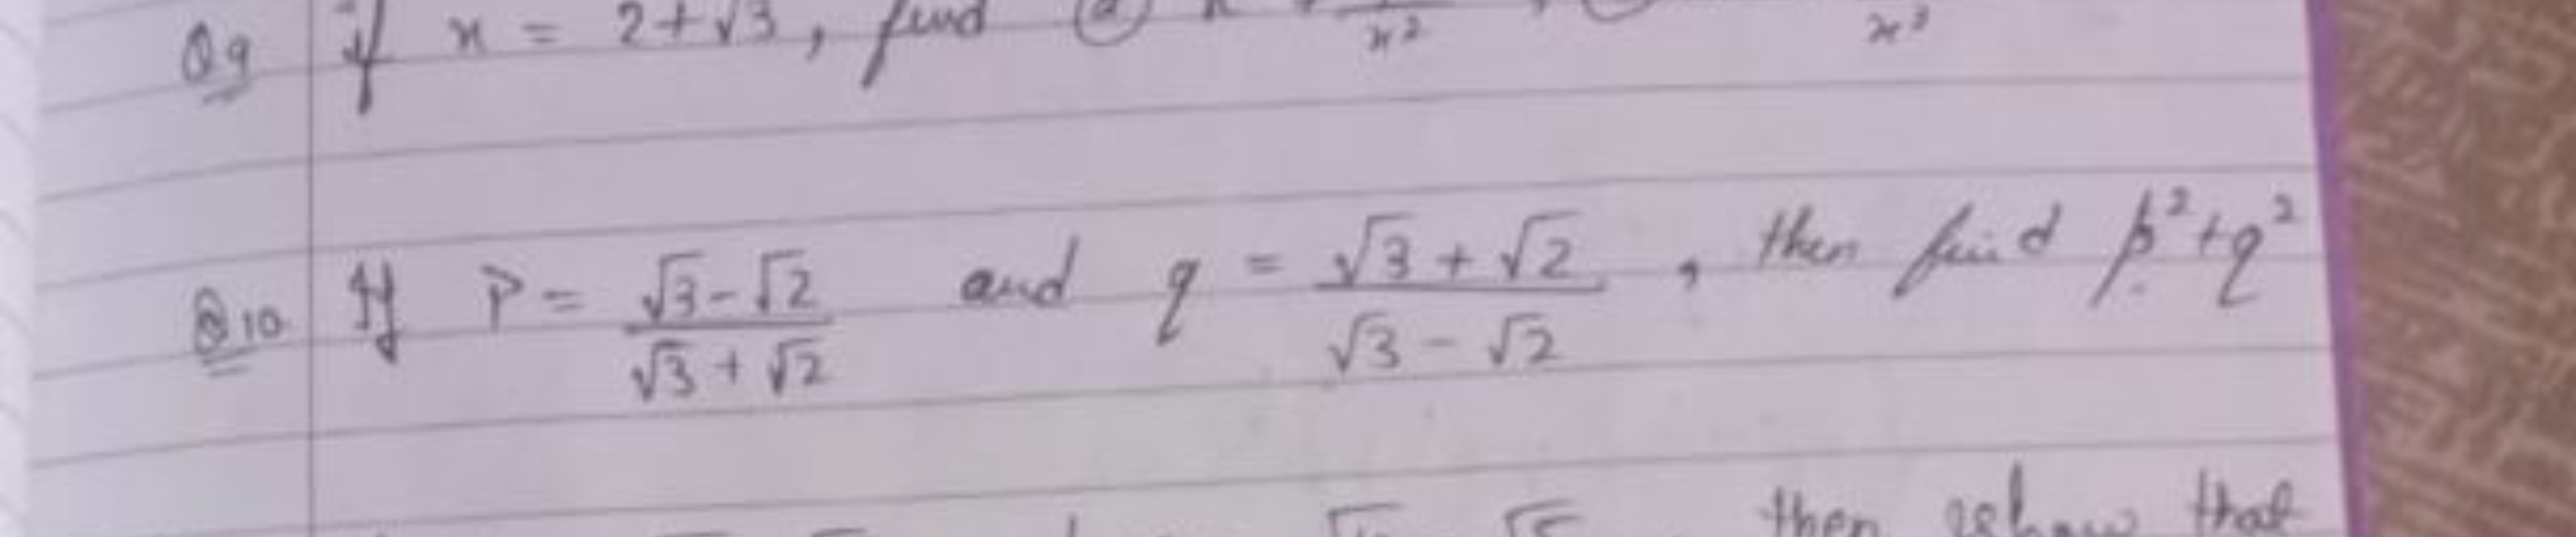 Q9 If x = 2+√3, find (a) x² + 1/x²,
Q10 If P = (√3-√2)/(√3+√2) and q = (√3+√2)/(√3-√2), then find p²+q²
then show that